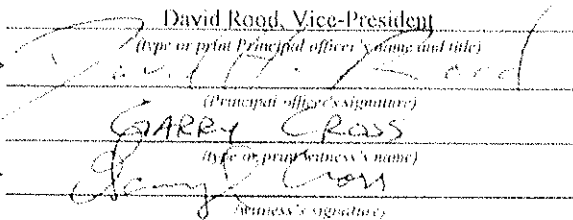 David Rood, Vice-President
(type or print Principal officer's name and title)
David H. Rood
(Principal officer's signature)
GARRY CROSS
(type or print witness's name)
Garry Cross
(witness's signature)